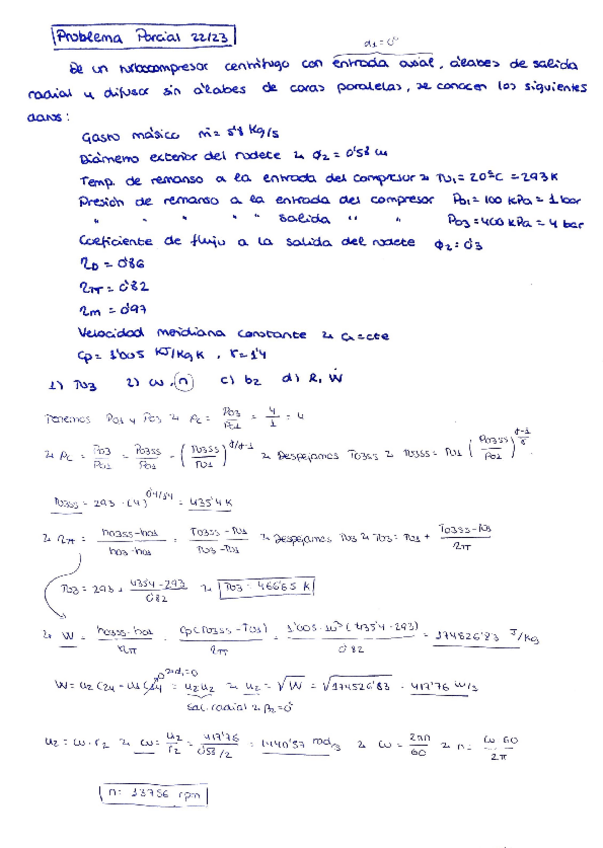 Problema Parcial 22/23
α1=0º
De un turbocompresor centrífugo con entrada axial, álabes de salida
radial y difusor sin álabes de caras paralelas, se conocen los siguientes
datos:
Gasto másico ṁ= 5'8 Kg/s
Diámetro exterior del rodete → ϕ2= 0'58 m
Temp. de remanso a la entrada del compresor → T01= 20ºC = 293 K
Presión de remanso a la entrada del compresor P01= 100 kPa = 1 bar
" " " " " salida " " P03= 400 kPa = 4 bar
Coeficiente de flujo a la salida del rodete ϕ2= 0'3
ηD = 0'86
ηTT = 0'82
ηm = 0'97
Velocidad meridiana constante → Cr=cte
Cp= 1'005 KJ/Kg K , γ= 1'4
1) T03 2) ω, n c) b2 d) R, Ẇ
Tenemos P01 y P03 → Pc = P03/P01 = 4/1 = 4
→ Pc = P03/P01 = P03ss/P01 = (T03ss/T01)^γ/γ-1 → Despejamos T03ss → T03ss = T01 (P03ss/P01)^γ-1/γ
T03ss = 293 · (4)^0'4/1'4 = 435'4 K
→ ηTT = h03ss-h01/h03-h01 = T03ss-T01/T03-T01 → Despejamos T03 → T03 = T01 + T03ss-T01/ηTT
T03 = 293 + 435'4-293/0'82 → T03 = 466'65 K
→ W = h03ss-h01/ηTT = Cp(T03ss-T01)/ηTT = 1'005·10³(435'4-293)/0'82 = 174526'83 J/Kg
W= u2 C2u - u1 C1u = u2 u2 → u2 = √W = √174526'83 = 417'76 m/s
0 → α1=0
sal. radial → β2=0
u2 = ω·r2 → ω = u2/r2 = 417'76/0'58/2 = 1440'57 rad/s → ω = 2πn/60 → n = ω 60/2π
n = 13756 rpm